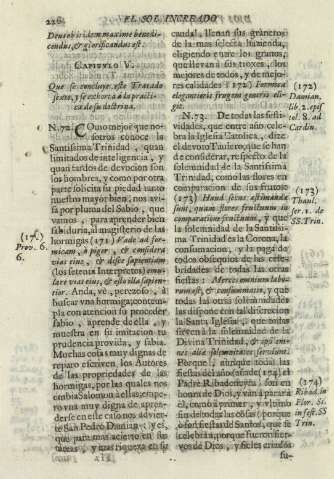 226 EL SOL INCREADO
Deus ob id dem maxime benedi-
cendus, & glorificandus est.
CAPITULO V.
Que se concluye este Tratado
sexto, y se exhorta à la practi-
ca de su doctrina.
N. 72. Como mejor que no-
sotros conoce la
Santissima Trinidad, quan
limitados de inteligencia, y
quan tardos de devocion son
los hombres, y como por otra
parte solicita su piedad tanto
nuestro mayor bien, nos avi-
sa por pluma del Sabio, que
vamos, para aprender bien
sabiduria, al magisterio de las
hormigas (171) Vade ad for-
micam, ò piger, & considera
vias eius, & disce sapientiam
(los setenta Interpretes) emu-
lare vias eius, & esto illa sapien-
tior. Anda, vè, perezoso, à
buscar vna hormiga, contem-
pla con atencion su proceder
sabio, aprende de ella, y
muestra en su imitacion tu
prudencia provida, y sabia.
Muchas cosas muy dignas de
reparo escriven los Autores
de las propriedades de las
hormigas, por las quales nos
embia Salomon à ellas; empe-
ro vna muy digna de apren-
derse en este caso nos advier-
te San Pedro Damian; y es,
que para mas acierto en sus
tratos, y mas riqueza en su
(171)
Prov. 6.
6.
caudal, llenan sus graneros
de la mas selecta hazienda,
eligiendo entre los granos,
que llevan à sus troxes, los
mejores de todos, y de mejo-
res calidades (172) Formica
elegantiora frugum genera eli-
git.
N. 73. De todas las festi-
vidades, que entre año cele-
bra la Iglesia Catolica, dize
el devoto Taulero, que se han
de considerar, respecto de la
solemnidad de la Santissima
Trinidad, como las flores en
comparacion de sus frutos
(173) Haud secus æstimanda
sunt, quam flores fructuum in
comparatione fructuum, y que
la solemnidad de la Santissi-
ma Trinidad es la Corona, la
consumacion, y la paga de
todos obsequios de las cele-
bridades de todas las otras
fiestas: Merces omnium labo-
rum est, & consummatio, y que
todas las otras solemnidades
las dispone con tal discrecion
la Santa Iglesia, que todas
sirven à la solemnidad de la
Divina Trinidad,
Porque, aunque todas las
fiestas del año (añade (174) el
Padre Ribadeneyra) son en
honra de Dios, y van à parar à
èl, como à primer, y vltimo
fin de todas las cosas (porque
ò son fiestas del Santos, que se
celebra, ò porque fueron sier-
vos de Dios, y fieles criados
su-
(172)
Damian.
lib. 2. epist
tol. 8. ad
Cardin.
(173)
Thaul.
ser. 1. de
SS. Trin.
(174)
Ribad. in
Flor. SS.
in fest. SS
Trin.